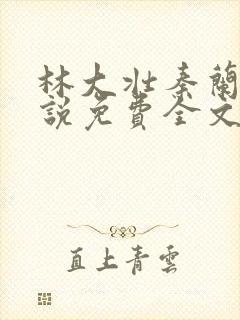 林大壯秦蘭
說免費全文
直上青雲